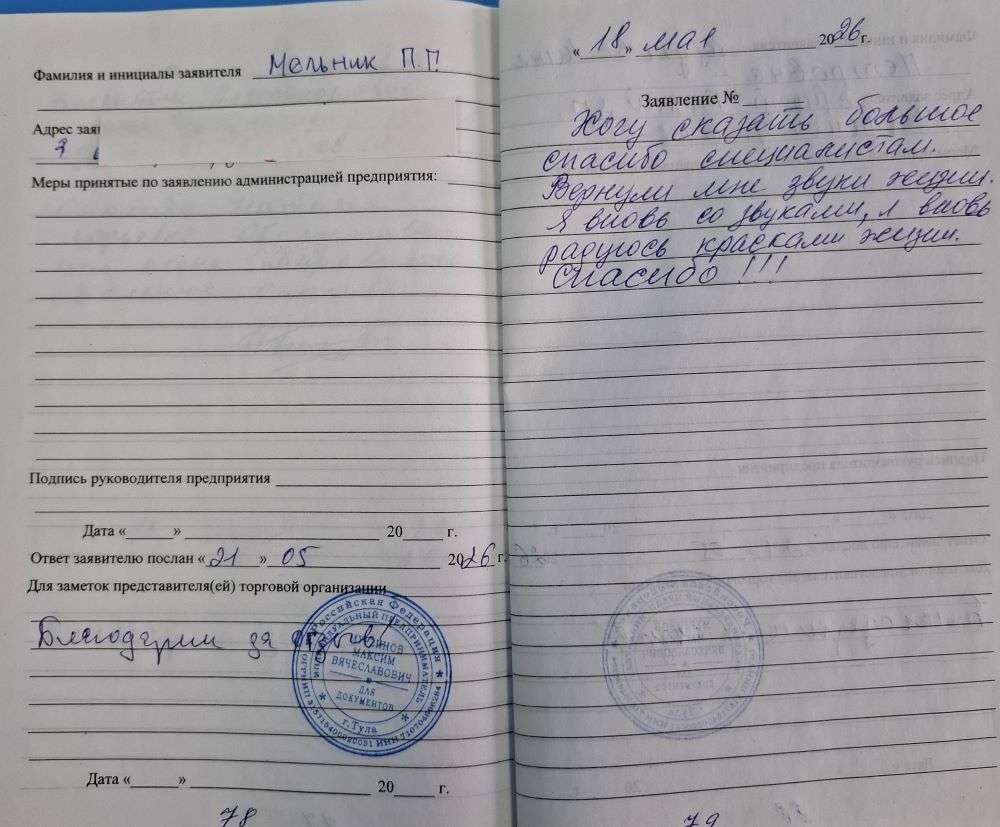 Фамилия и инициалы заявителя Мельник П.П
Адрес зая
Меры принятые по заявлению администрацией предприятия:
Подпись руководителя предприятия
Дата «      »                20     г.
Ответ заявителю послан « 21 » 05 2026 г.
Для заметок представителя(ей) торговой организации
Благодарим за отзыв!
Российская Федерация
МАКСИМ
ВЯЧЕСЛАВОВИЧ
ДЛЯ
ДОКУМЕНТОВ
г.Тула
Дата «      »                20     г.
78
« 18 » мая 2026 г.
Заявление №
Хочу сказать большое
спасибо специалистам.
Вернули мне звуки жизни.
Я вновь со звуками, я вновь
радуюсь красками жизни.
Спасибо!!!
79